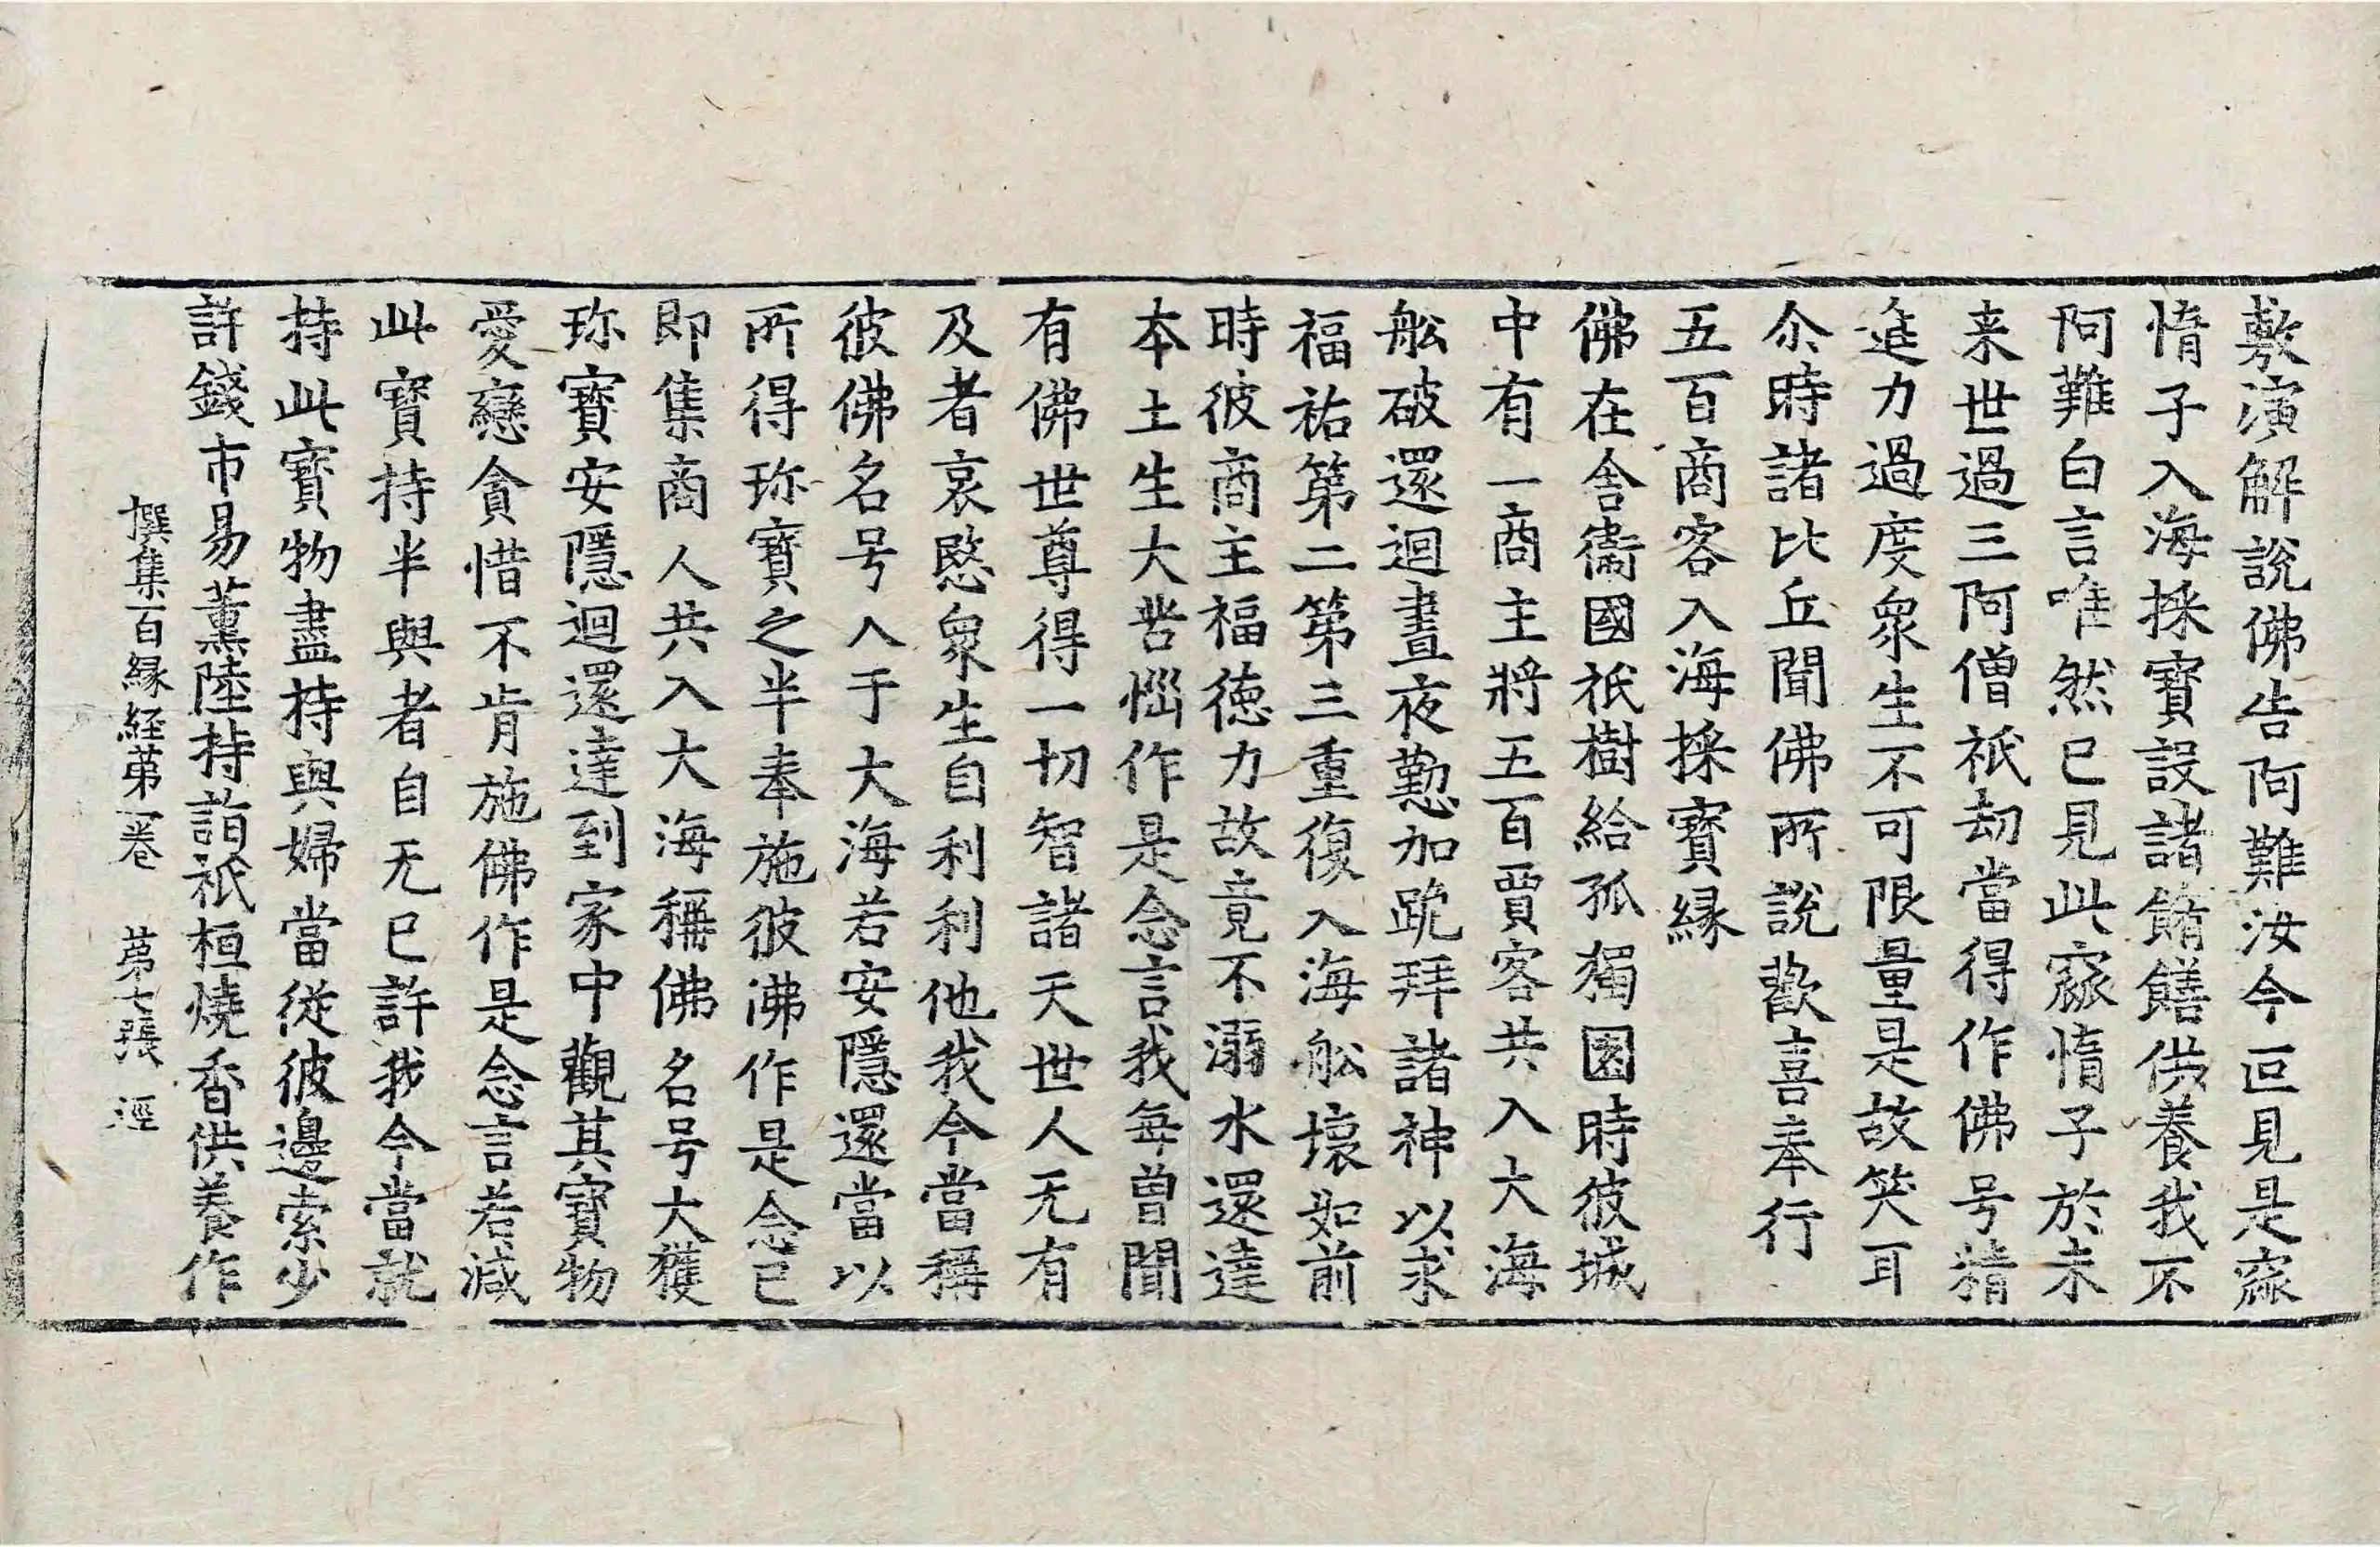 敷演解說佛告阿難汝今叵見是窳
惰子入海採寶設諸餚饍供養我不
阿難白言唯然已見此窳惰子於未
来世過三阿僧祇劫當得作佛号精
進力過度衆生不可限量是故笑耳
尒時諸比丘聞佛所說歡喜奉行
五百商客入海採寶縁
佛在舍衞國祇樹給孤獨園時彼城
中有一商主將五百賈客共入大海
舩破還迴晝夜懃加跪拜諸神以求
福祐第二第三重復入海舩壞如前
時彼商主福德力故竟不溺水還達
本土生大苦惱作是念言我每曾聞
有佛世尊得一切智諸天世人无有
及者哀愍衆生自利利他我今當稱
彼佛名号入于大海若安隱還當以
所得珎寶之半奉施彼佛作是念已
即集商人共入大海稱佛名号大獲
珎寶安隱迴還達到家中觀其寶物
愛戀貪惜不肯施佛作是念言若減
此寶持半與者自无已許我今當就
持此寶物盡持與婦當從彼邊索少
許錢市易薰陸持詣祇桓燒香供養作
撰集百縁経第一卷 第七張 逕